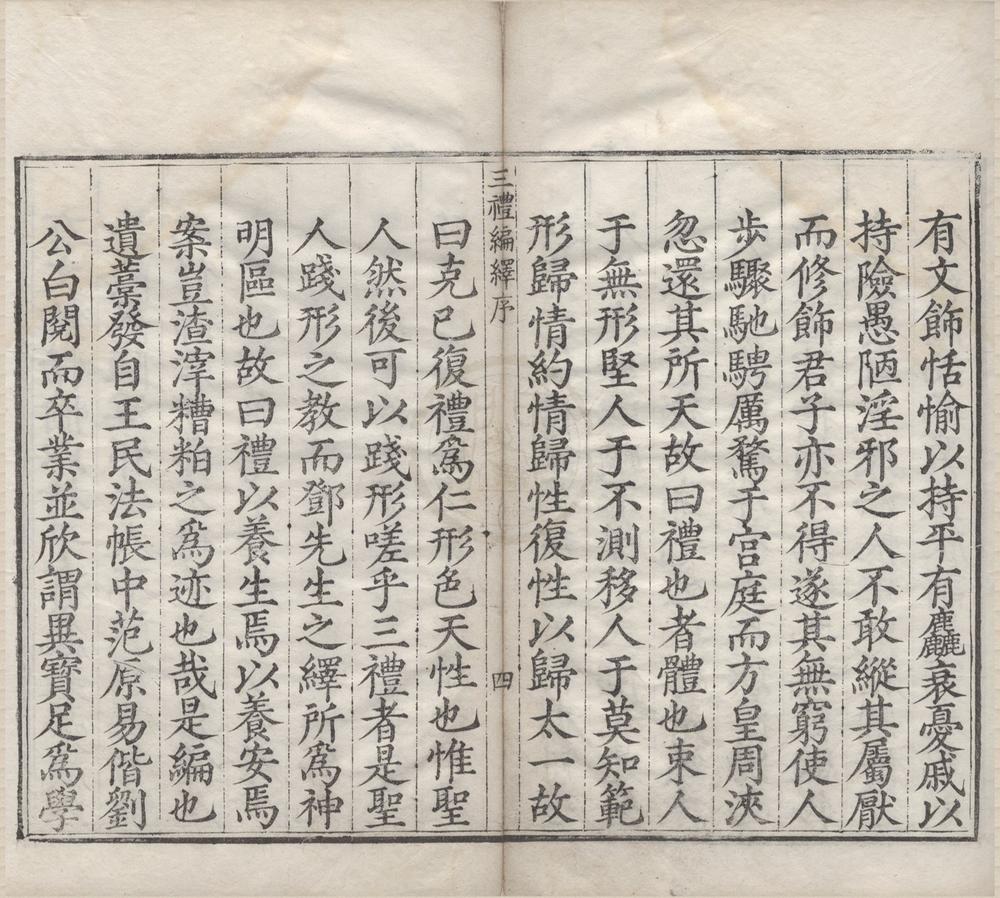 有文飾恬愉以持平有麤衰憂戚以
持險愚陋淫邪之人不敢縱其屬厭
而修飾君子亦不得遂其無窮使人
步驟馳騁厲騖于宫庭而方皇周浹
忽還其所天故曰禮也者體也束人
于無形堅人于不測移人于莫知範
形歸情約情歸性復性以歸太一故
三禮編繹序
四
曰克已復禮爲仁形色天性也惟聖
人然後可以踐形嗟乎三禮者是聖
人踐形之教而鄧先生之繹所爲神
明區也故曰禮以養生焉以養安焉
案豈渣滓糟粕之爲迹也哉是編也
遺藁發自王民法帳中范原易偕劉
公白閱而卒業並欣謂異寶足爲學